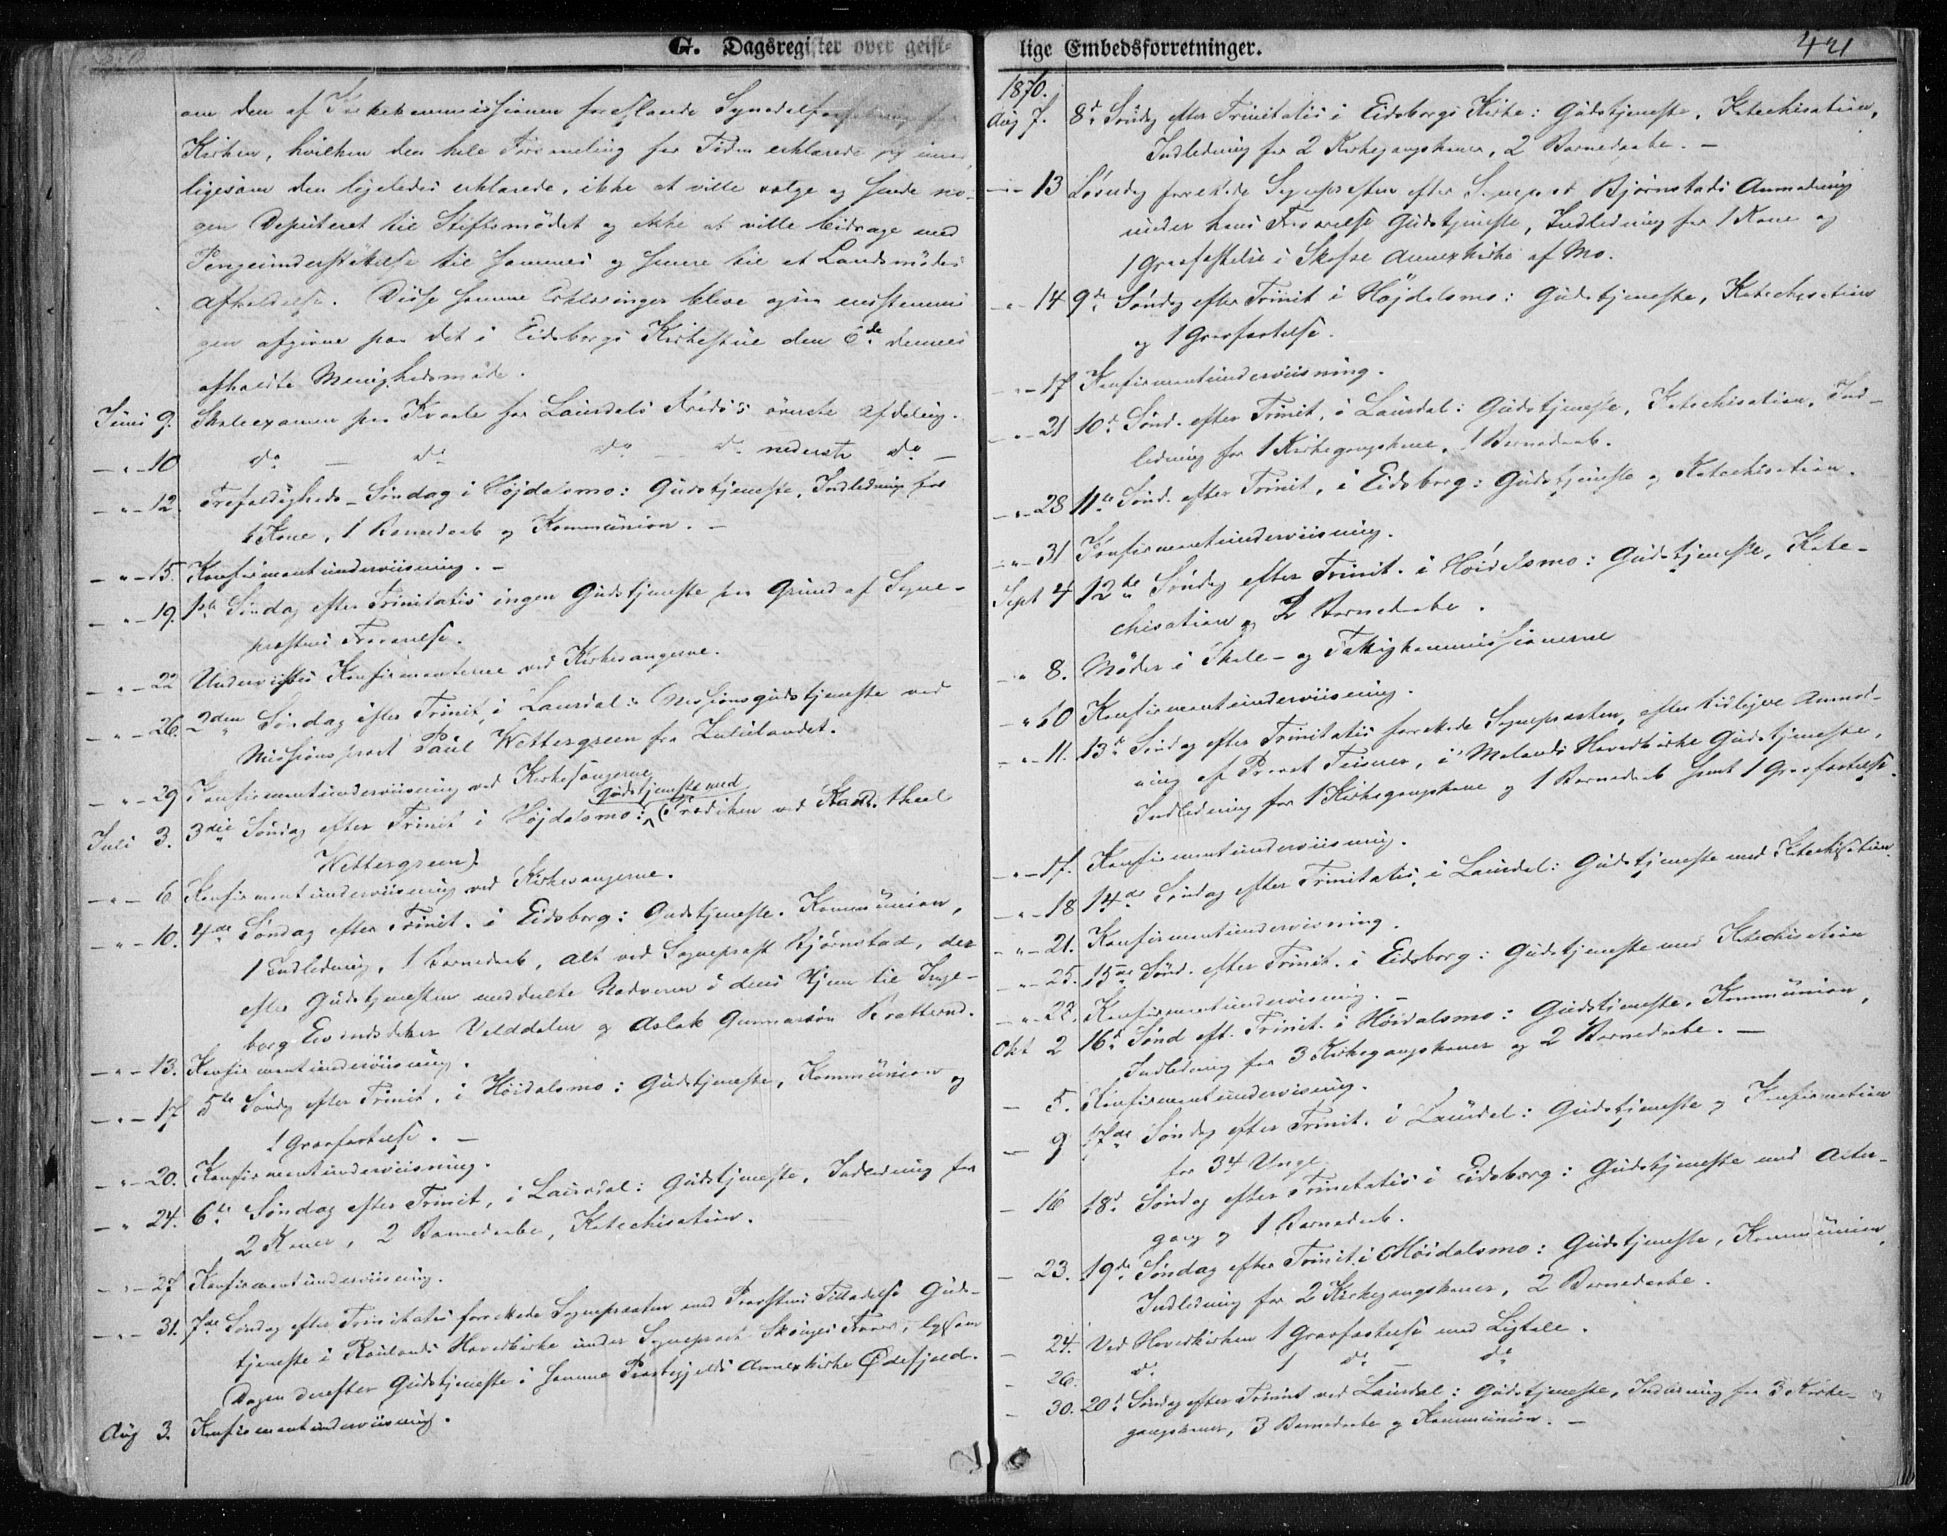 G. Dagsregister over geist-
om den af Kirkekommissionen foreslaaede Synodalforfatning for
Kirken, hvilken den hele Forsamling for Tiden erklærede sig imod,
ligesom den ligeledes erklærede, ikke at ville vælge og sende no-
gen Deputeret til Stiftsmødet og ikke at ville bidrage med
Pengeunderstøttelse til sammes og senere til et Landsmødes
Afholdelse. Disse samme Erklæringer bleve ogsaa eenstemmi-
gen afgivne paa det i Eidsborgs Kirkestue den 6de dennes
afholdte Menighedsmøde.
Juni 9. Skoleexamen paa Kvaale for Laurdals Kreds's øverste Afdeling.
— " — 10 do — do do — do nederste do —
— " — 12. Trefoldigheds-Søndag i Højdalsmo: Gudstjeneste, Indledning for
1 Kone, 1 Barnedaab og Kommunion. —
— " — 15. Konfirmantunderviisning. —
— " — 19. 1ste Søndag efter Trinitatis ingen Gudstjeneste paa Grund af Sogne-
præstens Fraværelse.
— " — 22 Underviistes Konfirmanterne ved Kirkesangerne.
— " — 26. 2den Søndag efter Trinit. i Laurdal: Missionsgudstjeneste ved
Missionspræst Paul Wettergreen fra Zululandet.
— " — 29 Konfirmantunderviisning ved Kirkesangerne
Gudstjeneste med
Juli 3. 3die Søndag efter Trinit i Højdalsmo: (Prædiken ved Kand. theol
Wettergreen)
— " — 6 Konfirmantunderviisning ved Kirkesangerne.
— " — 10. 4de Søndag efter Trinit. i Eidsborg: Gudstjeneste. Kommunion,
1 Indledning, 1 Barnedaab, alt ved Sognepræst Bjørnstad, der
efter Gudstjenesten meddeelte Nadveren i deres Hjem til Inge-
borg Eivindsdatter Velddalen og Aslak Gunnarsøn Bratterud.
— " — 13. Konfirmantunderviisning.
— " — 17 5te Søndag efter Trinit. i Høidalsmo: Gudstjeneste, Kommunion og
1 Gravfæstelse. —
— " — 20. Konfirmantunderviisning.
— " 24. 6te Søndag efter Trinit. i Laurdal: Gudstjeneste, Indledning for
2 Koner, 2 Barnedaabe, Katechisation.
— " — 27 Konfirmantunderviisning.
— " — 31. 7de Søndag efter Trinitatis forrettede Sognepræsten med Provstens Tilladelse Guds-
tjeneste i Raulands Hovedkirke under Sognepræst Fravær, ligesom
Dagen derefter Gudstjeneste i samme Præstegjelds Annexkirke Øifjeld.
Aug 3. Konfirmantunderviisning.
lige Embedsforretninger. 421
1870.
Aug 7. 8de Søndag efter Trinitatis i Eidsborgs Kirke: Gudstjeneste, Katechisation,
Indledning for 2 Kirkegangskoner, 2 Barnedaabe. —
— " — 13 Løverdag forrettede Sognepræsten efter Sognepræst Bjørnstads Anmodning
under hans Fraværelse Gudstjeneste, Indledning for 1 Kone og
1 Gravfæstelse i Skafse Annexkirke af Mo.
— " — 14 9de Søndag efter Trinit i Højdalsmo: Gudstjeneste, Katechisation
og 1 Gravfæstelse.
— " — 17 Konfirmantunderviisning.
— " — 21 10de Sønd. efter Trinit. i Laurdal: Gudstjeneste, Katechisation, Ind-
ledning for 1 Kirkegangskone, 1 Barnedaab.
— " — 28 11te Sønd. efter Trinit. i Eidsborg: Gudstjeneste og Katechisation.
— " — 31 Konfirmantunderviisning.
Sept 4 12te Søndag efter Trinit. i Høidalsmo: Gudstjeneste, Kate-
chisation og 2 Barnedaabe.
— " 8. Møder i Skole- og Fattigkommissionerne
— " 10 Konfirmantunderviisning.
— " — 11. 13de Søndag efter Trinitatis forrettede Sognepræsten, efter tidligere Anmod-
ning af Provst , i Molands Hovedkirke Gudstjeneste,
Indledning for 1 Kirkegangskone og 1 Barnedaab samt 1 Gravfæstelse.
— " — 17. Konfirmantunderviisning.
— " — 18 14de Søndag efter Trinitatis, i Laurdal: Gudstjeneste med Katechisation.
— " — 21. Konfirmantunderviisning.
— " — 25. 15de Sønd. efter Trinit. i Eidsborg: Gudstjeneste med Katechisation
— " — 28. Konfirmantunderviisning. —
Okt 2 16de Sønd eft. Trinit. i Høidalsmo: Gudstjeneste. Kommunion,
Indledning for 3 Kirkegangskoner og 2 Barnedaabe. —
— 5. Konfirmantunderviisning.
— 9 17de Søndag efter Trinit. i Laurdal: Gudstjeneste og Konfirmation
for 34 Unge.
— 16 18de Søndag efter Trinitatis i Eidsborg: Gudstjeneste med Alter-
gang og 1 Barnedaab.
— 23. 19de Søndag efter Trinit. i Høidalsmo: Gudstjeneste, Kommunion,
Indledning for 2 Kirkegangskoner, 2 Barnedaabe.
— 24. Ved Hovedkirken 1 Gravfæstelse med Ligtale.
— 26. do 1 do — do
— 30. 20de Søndag efter Trinit ved Laurdal: Gudstjeneste, Indledning for 3 Kirke-
gangskoner, 3 Barnedaabe og Kommunion. —